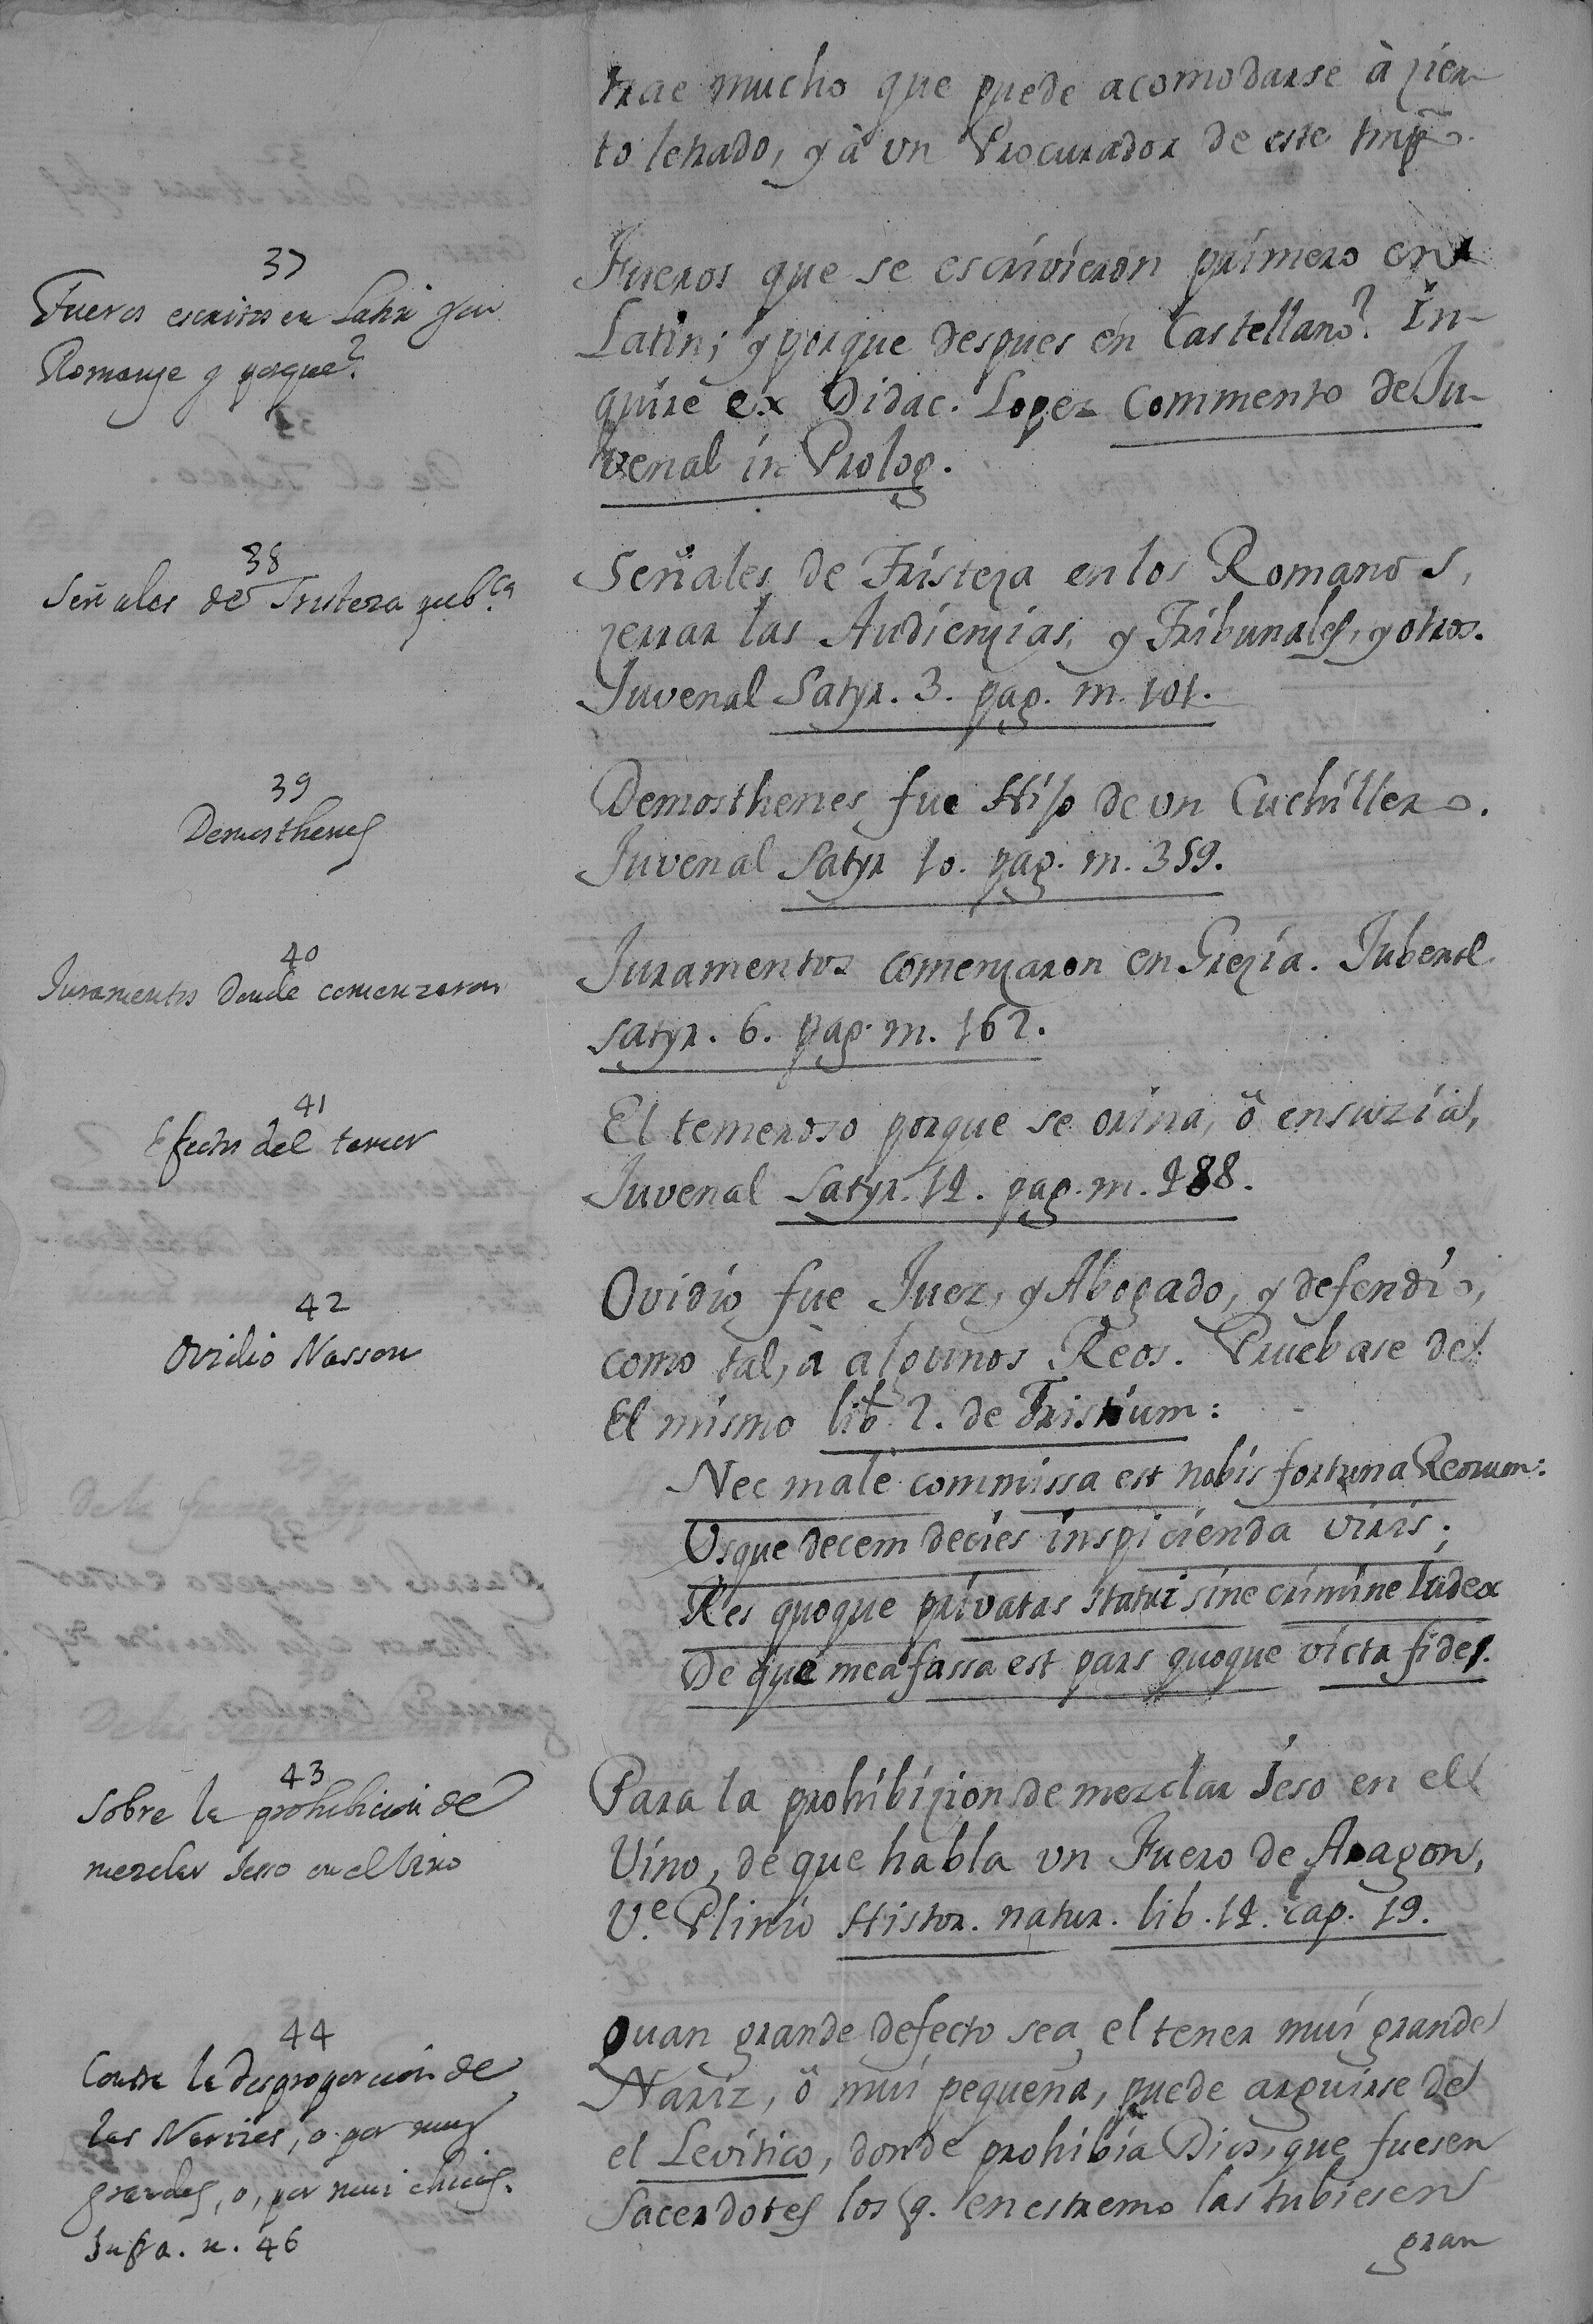 trae mucho que puede acomodarse à zier-
to letrado, y à un Procurador de este tmpo.
37
Fueros escritos en Latin y en
Romanze y porque?
Fueros que se escrivieron primero en
Latin; y porque despues en Castellano? In-
quire ex Didac. Lopez Commento de Ju-
venal in Prolog.
38
Señales de Tristeza pubca
Señales de Tristeza en los Romanos,
zerrar las Audienzias, y Tribunales, y otros.
Juvenal Satyr. 3. pag. m. 101.
39
Demosthenes
Demosthenes fue Hijo de un Cuchillero.
Juvenal Satyr 10. pag. m. 359.
40
Juramentos donde comenzaron
Juramentos comenzaron en Grezia. Jubenal
satyr. 6. pag. m. 162.
41
Efectos del temor
El temeroso porque se orina, ò ensuzia,
Juvenal Satyr. 14. pag. m. 488.
42
Ovidio Nasson
Ovidio fue Juez, y Abogado, y defendio,
como tal, à algunos Reos. Pruebase de
El mismo lib. 2. de Tristium:
Nec malè commissa est nobis fortuna Reorum:
Usque decem decies inspicienda viris;
Res quoque privatas statui sine crimine Iudex
De que mea fassa est pars quoque victa fide.
43
Sobre la prohibicion de
mezclar Jesso en el Vino
Para la prohibizion de mezclar Jeso en el
Vino, de que habla un Fuero de Aragon,
Ve. Plinio Histor. natur. lib. 14. cap. 19.
44
Contra la desproporcion de
las Narizes, o por muy
grandes, o, por mui chicas.
Infra. n. 46
Quan grande defecto sea el tener mui grande
Nariz, ò mui pequeña, puede arguirse de
el Levitico, donde prohibia Dios, que fuesen
Sacerdotes los q. en estremo las tubiesen
gran